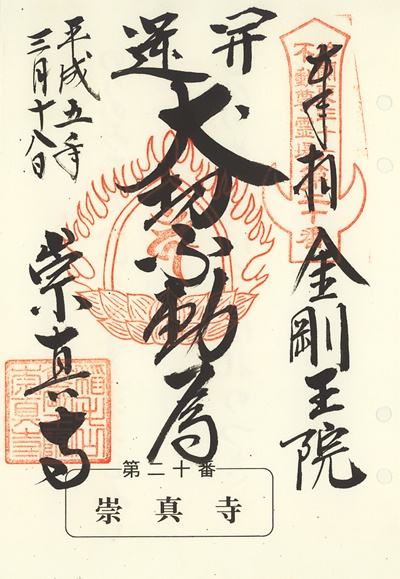 奉拝 金剛王院
不動尊霊場第二十番
開運
犬切不動尊
平成五年
三月十八日
崇真寺
第二十番
崇真寺